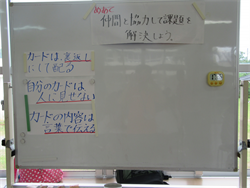 めあて
仲間と協力して課題を
解決しよう
カードは裏返し
にして配る
自分のカードは
人に見せない
カードの内容は
言葉で伝える